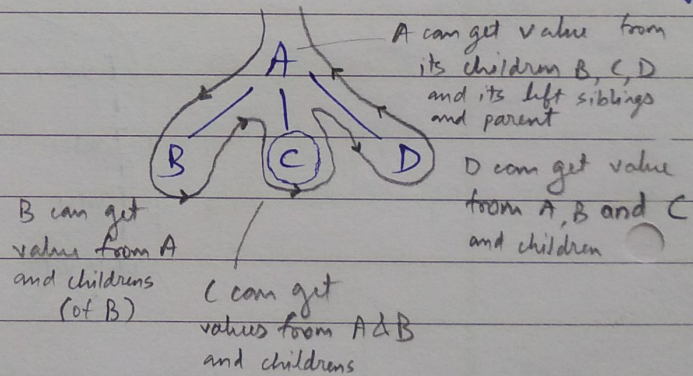 A can get value from
its children B, C, D
and its left siblings
and parent
A
B
C
D
D can get value
from A, B and C
and children
B can get
value from A
and childrens
(of B)
C can get
values from A & B
and childrens